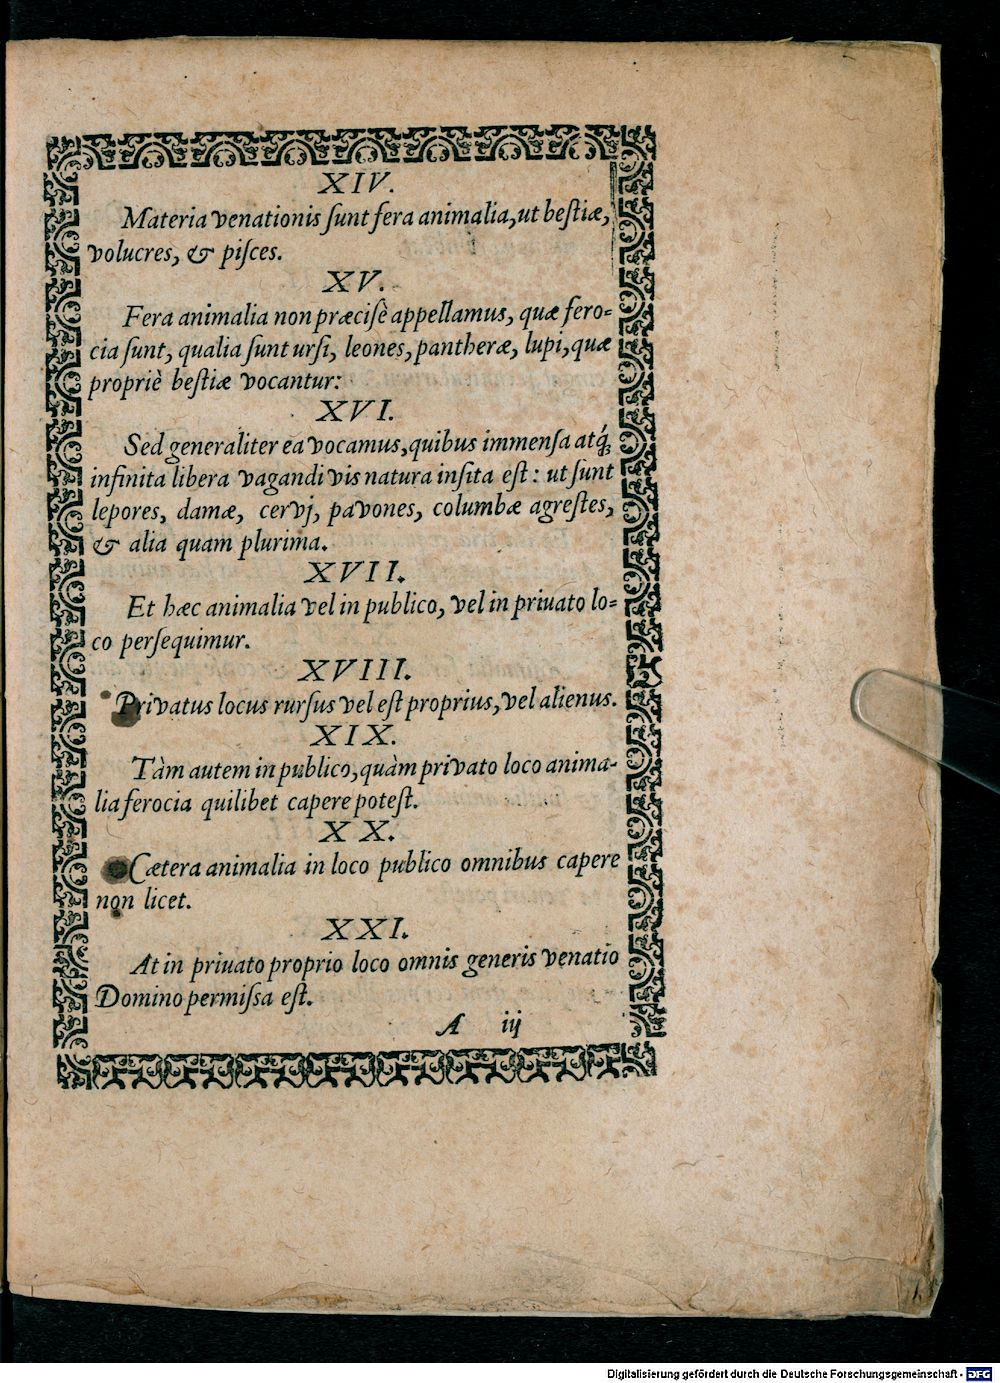 XIV.
Materia venationis ſunt fera animalia, ut beſtiæ,
volucres, & piſces.
XV.
Fera animalia non præcisè appellamus, quæ fero=
cia ſunt, qualia ſunt urſi, leones, pantheræ, lupi, quæ
propriè beſtiæ vocantur:
XVI.
Sed generaliter ea vocamus, quibus immenſa atq́₃
infinita libera vagandi vis natura inſita eſt: ut ſunt
lepores, damæ, cervj, pavones, columbæ agreſtes,
& alia quam plurima.
XVII.
Et hæc animalia vel in publico, vel in priuato lo=
co perſequimur.
XVIII.
Privatus locus rurſus vel eſt proprius, vel alienus.
XIX.
Tàm autem in publico, quàm privato loco anima-
lia ferocia quilibet capere poteſt.
XX.
Cætera animalia in loco publico omnibus capere
non licet.
XXI.
At in priuato proprio loco omnis generis venatio
Domino permiſſa eſt.
A iij
Digitalisierung gefördert durch die Deutsche Forschungsgemeinschaft - DFG